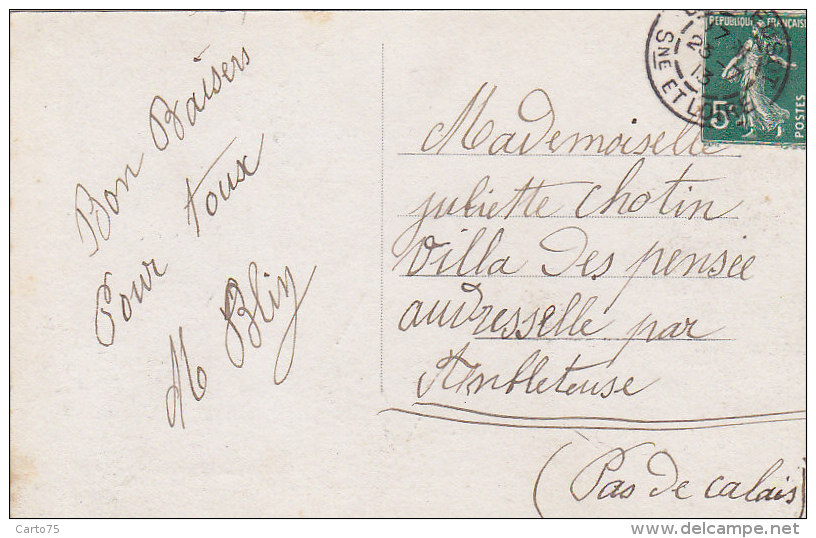 Bon Baisers
Pour toux
M Blin
Mademoiselle
juliette Chotin
Villa Des pensée
audresselle par
Ambleteuse
(Pas de calais)
REPUBLIQUE FRANÇAISE
5c
POSTES
23-7
13
SNE ET LOIRE
Carto75
delcampe.net